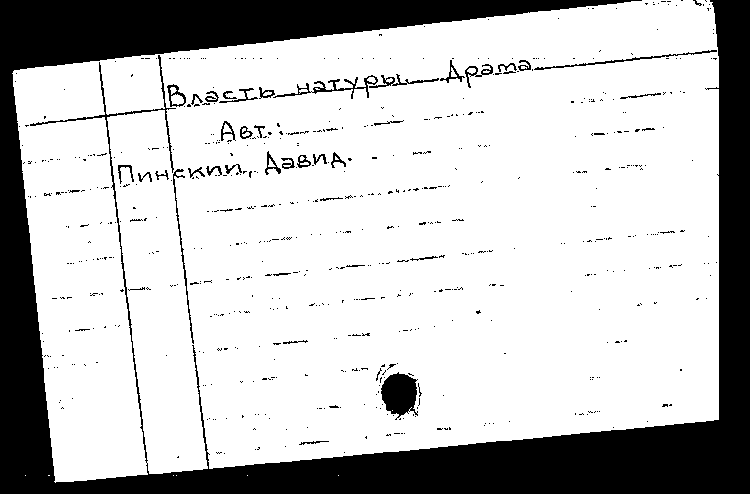 Власть натуры. Драма
Авт.:
Пинский, Давид.